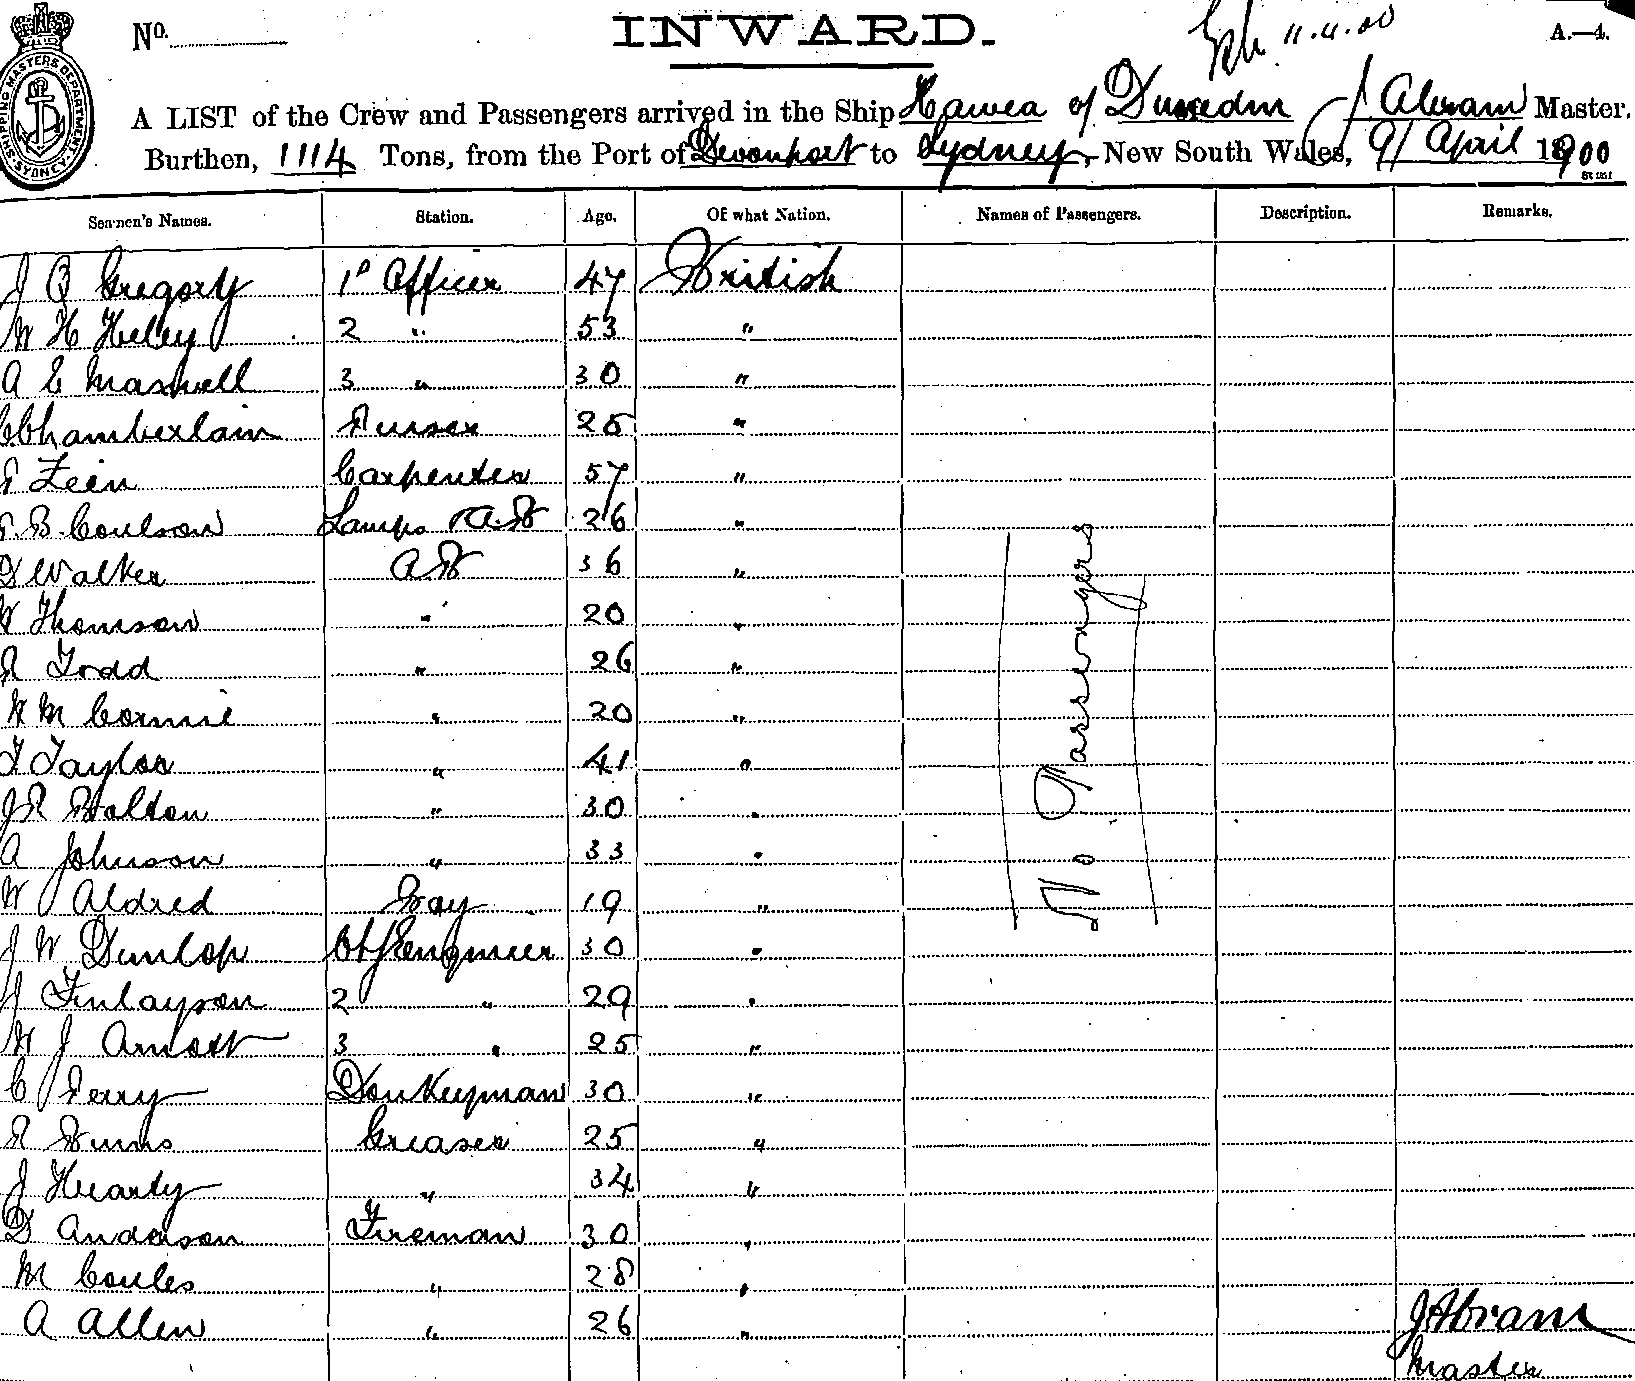 No.
INWARD.
11.4.00
A.—4.
SHIPPING MASTERS DEPARTMENT SYDNEY
A LIST of the Crew and Passengers arrived in the Ship Hawea of Dunedin J Abram Master.
Burthen, 1114 Tons, from the Port of Devonport to Sydney, New South Wales, 9/ April 1900
Seamen's Names. Station. Age. Of what Nation. Names of Passengers. Description. Remarks.
Gregory 1st Officer 47 British
W H Heley 2 " 53 "
A E Maxwell 3 " 30 "
C Chamberlain Purser 25 "
P Lein Carpenter 57 "
B. Coulson Lamps & A.B 26 "
D Walker AB 36 "
W Thomson " 20 "
R Todd " 26 "
W M Cormie " 20 "
T Taylor " 41 "
J R Bolton " 30 "
A Johnson " 33 "
W Aldred Boy 19 "
J W Dunlop Ch Engineer 30 "
J Finlayson 2 " 29 "
W J Arnott 3 " 25 "
C Perry Donkeyman 30 "
R Burns Greaser 25 "
J Hearty " 34 "
D Anderson Fireman 30 "
M Coules " 28 "
A Allen " 26 "
No Passengers
J Abram
Master